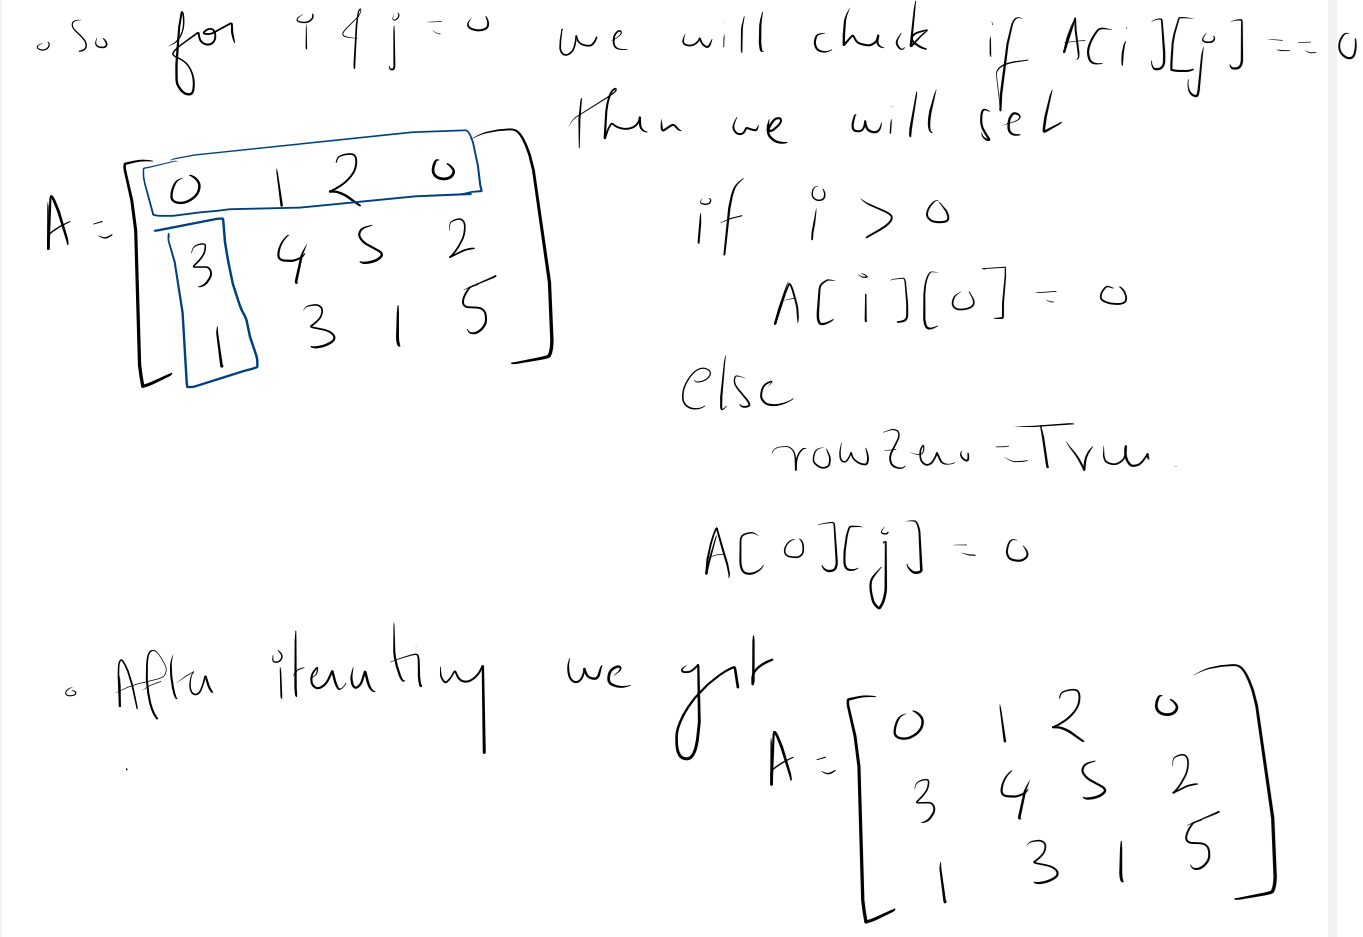 ◦ So for i & j = 0 we will check if A[i][j] == 0
then we will set
A = [0 1 2 0
3 4 5 2
1 3 1 5]
if i > 0
A[i][0] = 0
else
rowZero = True
A[0][j] = 0
◦ After iterating we get
A = [0 1 2 0
3 4 5 2
1 3 1 5]